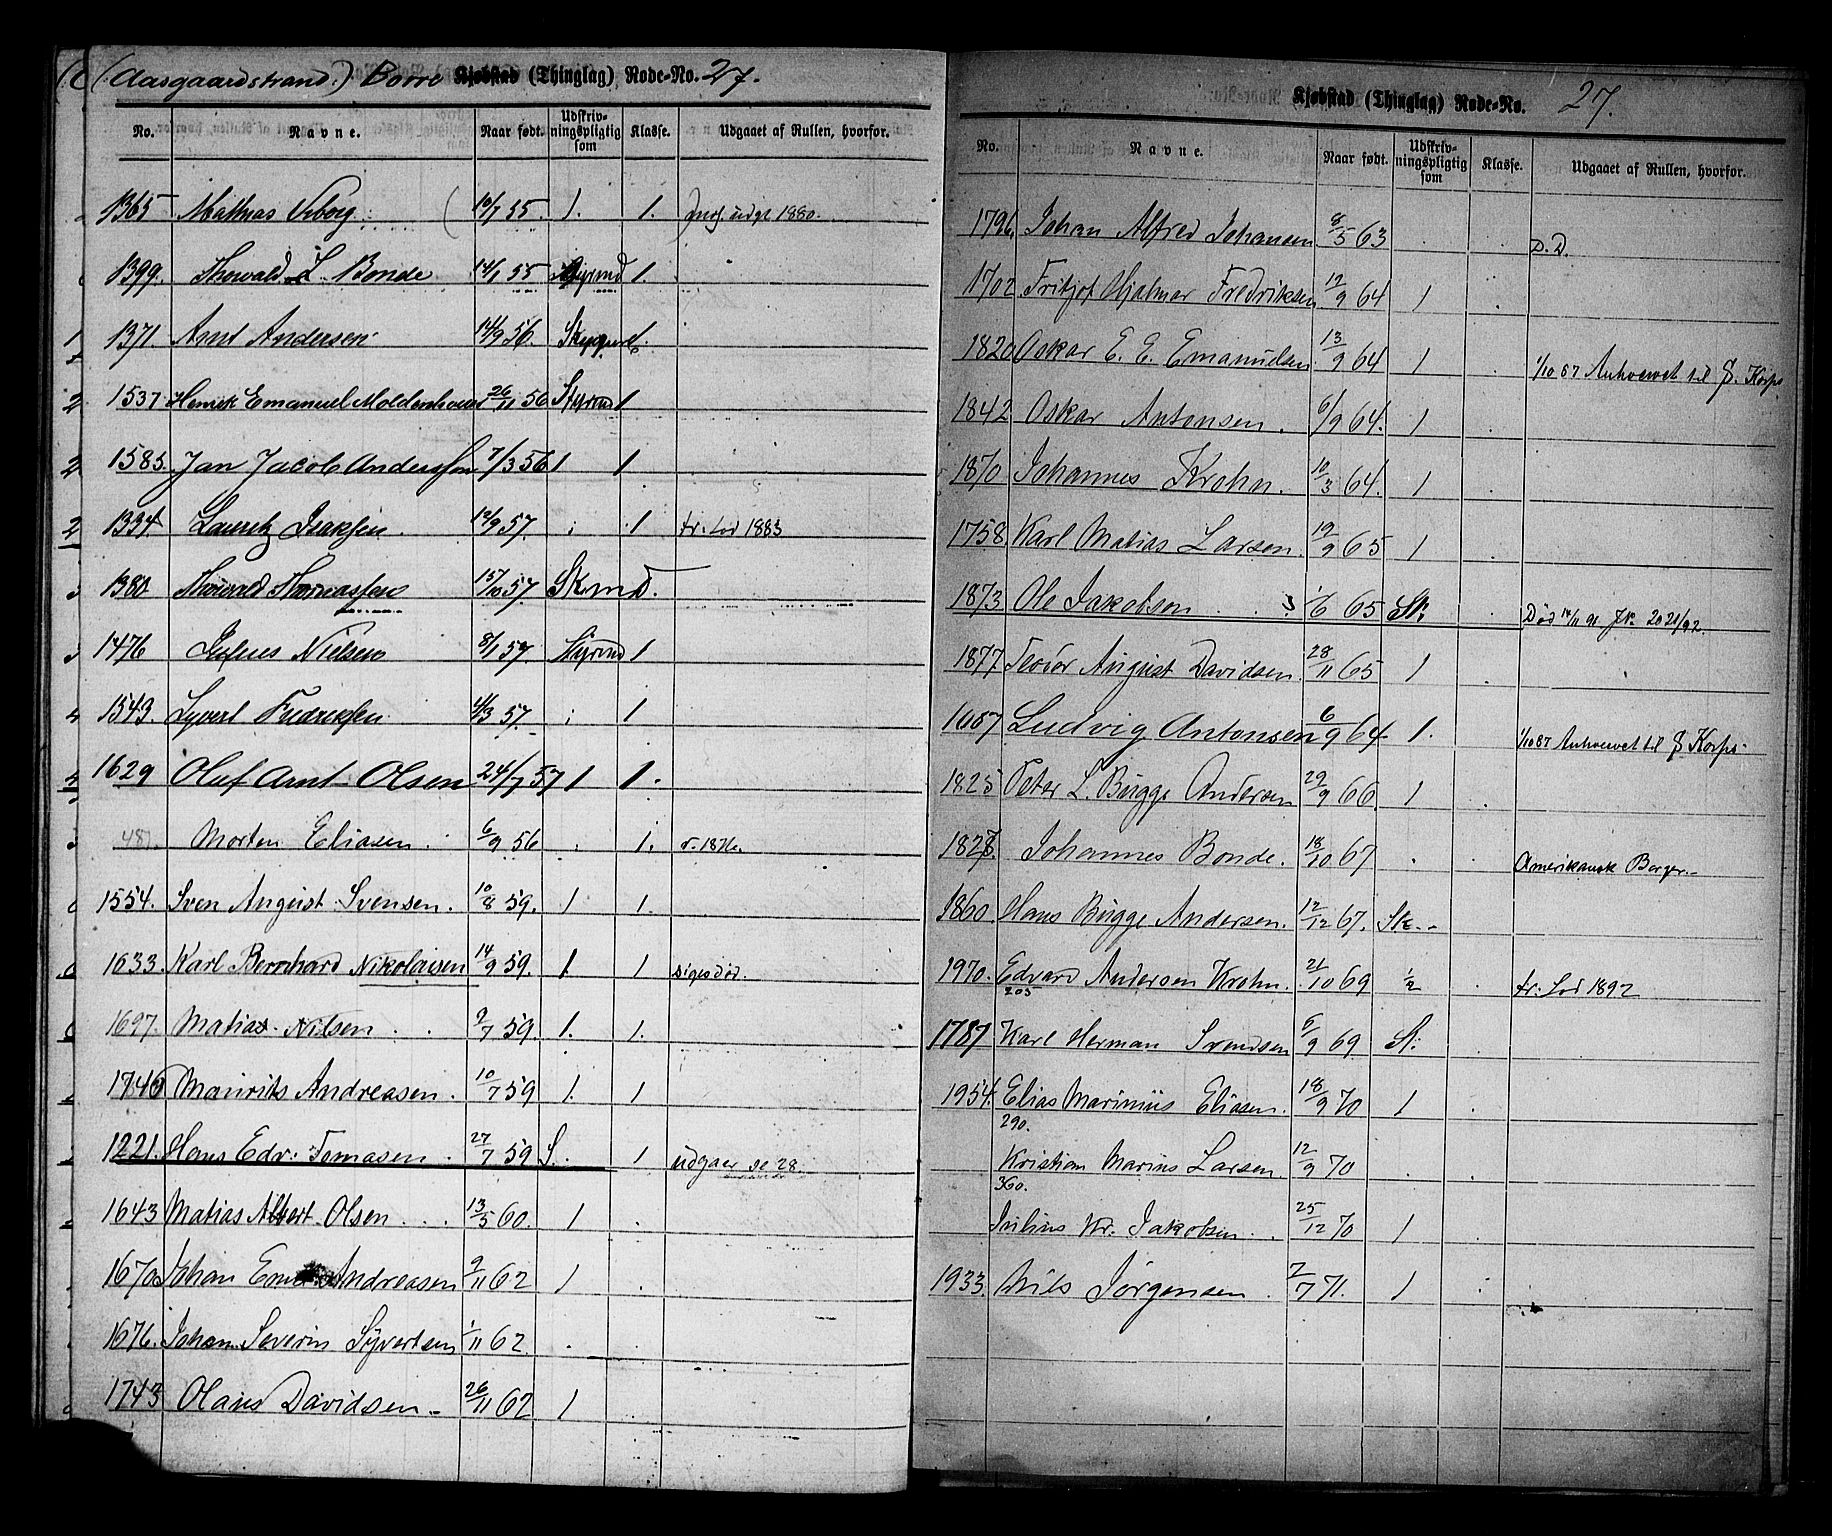 (Aasgaardstrand.) Borre Kjøbstad (Thinglag) Rode-No. 27.
No. Navne. Naar født. Udskriv-ningspligtig som Klasse. Udgaaet af Rullen, hvorfor.
1365 Mathias Viborg 10/7 55. 1. 1. udgt 1880.
1399. Thorvald L. Bonde 14/1 55 Styrmd 1.
1371. Arnt Andersen 14/9 56. 1.
1537 Henrik Emanuel Moldenhauer 26/11 56 Styrmd 1
1585. Jan Jacob Anderssen 7/3 56 1 1
1334. Lauritz Isaksen 12/9 57. 1 tr: Lod 1883
1380 Thorvald Thomassen 15/10 57 Skmd.
1476 Julius Nielsen 8/1 57. Styrmd 1
1543. Syvert Fredriksen 4/3 57. 1
1629 Oluf Arnt Olsen 24/7 57 1 1.
481. Morten Eliasen 6/9 56 1. r. 1876.
1554. Sven August Svensen. 10/8 59. 1 1.
1633. Karl Bernhard Nikolaisen 14/9 59. 1. 1 siges død.
1697. Matias Nilsen 9/7 59. 1. 1.
1740 Maurits Andreasen. 10/7 59 1. 1
1221. Hans Edv: Tomasen. 27/7 59 S. 1 udgaar se 28.
1643 Matias Albert Olsen 13/5 60. 1
1670 Johan Andreasen 9/11 62 1
1676. Johan Severin Syvertsen 1/11 62.
1743 Olaus Davidsen 26/11 62 1
Kjøbstad (Thinglag) Rode-No. 27.
No. Navne. Naar født. Udskriv-ningspligtig som Klasse. Udgaaet af Rullen, hvorfor.
1796. Johan Alfred Johansen 8/5 63 D. D.
1702 Fritjof Hjalmar Fredriksen 12/9 64 1
1820 Oskar E. E. Emanuelsen 13/9 64 1 1/10 87 til Korps
1842 Oskar Antonsen. 6/9 64. 1
1870 Johannes Krohn. 10/3 64. 1
1758 Karl Matias Larsen. 19/9 65 1
1873 Ole Jakobsen /6 65 Sk: Død 14/11 91 Jk. 2021/92.
1877. Teodor August Davidsen. 28/11 65 1
Ludvig Antonsen 6/9 64. 1. 1/10 87 til Korps
1825 Peter L. Bugge Andersen 29/9 66. 1
1828. Johannes Bonde. 18/10 67 Amerikansk Borger.
1860. Hans Bugge Andersen. 12/12 67. Sk.
1970. Edvard Andersen Krohn. 21/10 69 1/2 tr: Lod 1892
203
1787 Karl Herman Svendsen 5/9 69 St:
1954. Elias Marinius Eliasen. 18/9 70 1
290.
Kristian Marius Larsen 12/9 70
360.
Julius Kr. Jakobsen 25/12 70 1
1933. Nils Jörgensen 2/7 71. 1